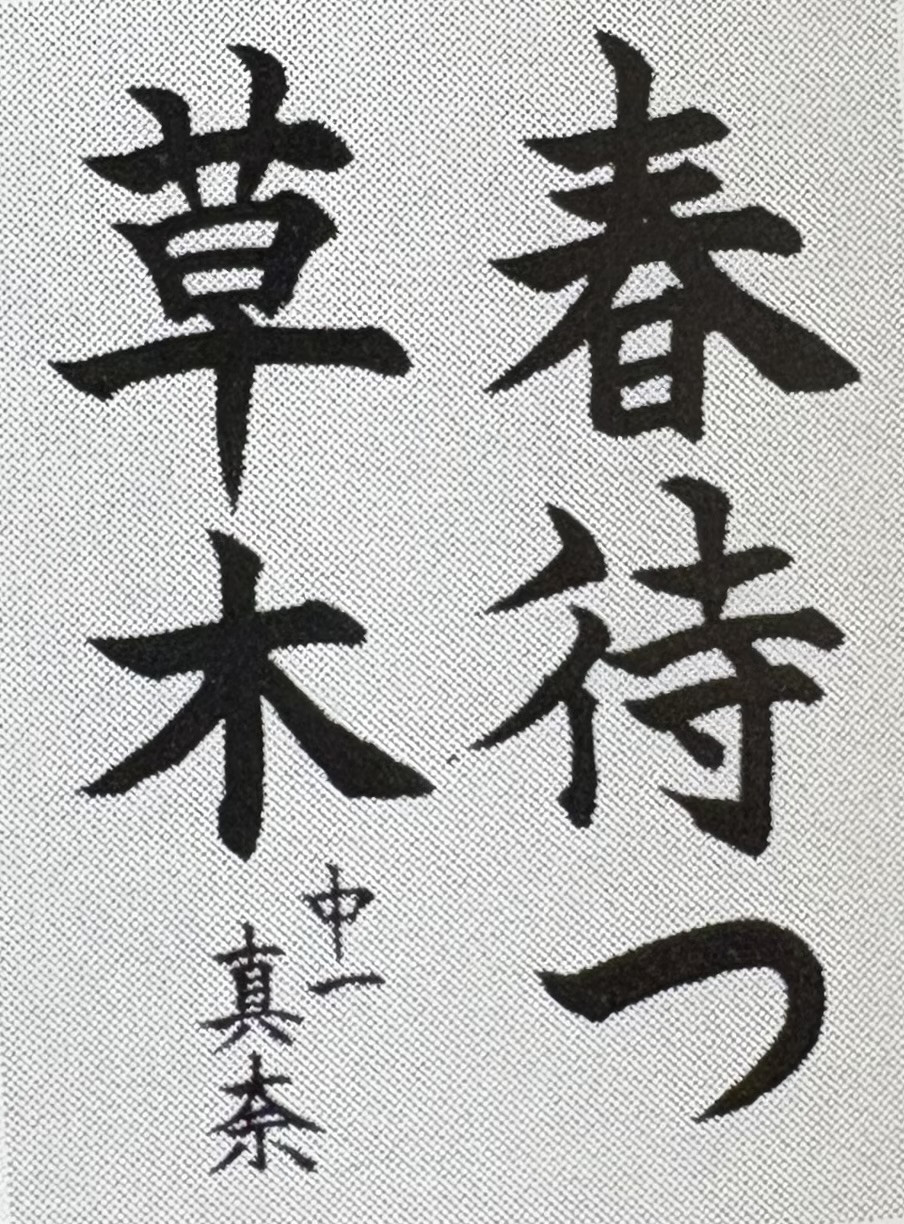 春待つ
草木
中一
真奈